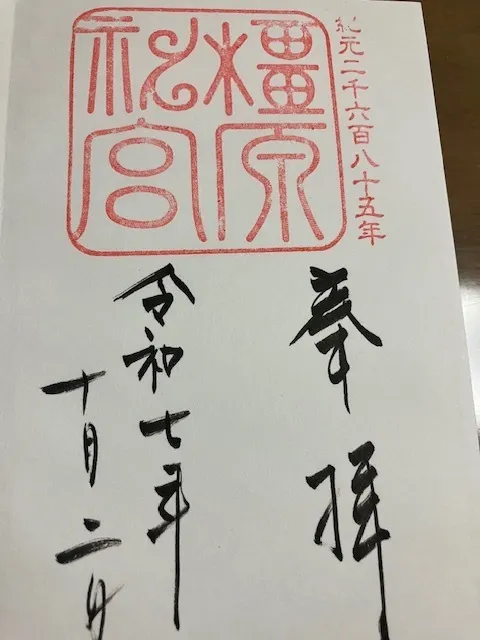 紀元二千六百八十五年
橿原
神宮
奉拝
令和七年
十月二日